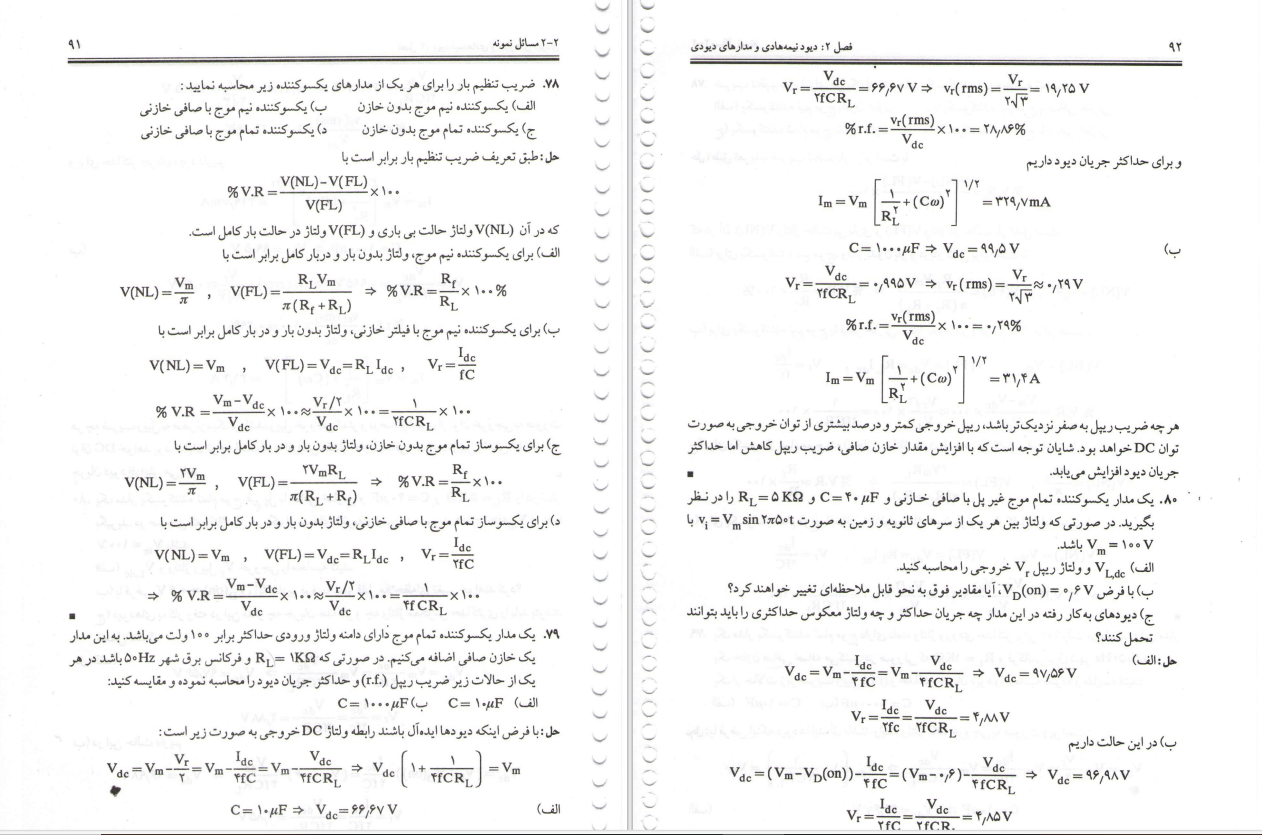 ۲-۲ مسائل نمونه ۹۱
۷۸. ضریب تنظیم بار را برای هر یک از مدارهای یکسوکننده زیر محاسبه نمایید :
الف) یکسوکننده نیم موج بدون خازن ب) یکسوکننده نیم موج با صافی خازنی
ج) یکسوکننده تمام موج بدون خازن د) یکسوکننده تمام موج با صافی خازنی
حل: طبق تعریف ضریب تنظیم بار برابر است با
% V.R = (V(NL)-V(FL))/V(FL) × ۱۰۰
که در آن V(NL) ولتاژ حالت بی باری و V(FL) ولتاژ در حالت بار کامل است.
الف) برای یکسوکننده نیم موج، ولتاژ بدون بار و دربار کامل برابر است با
V(NL) = Vm/π , V(FL) = RLVm/π(Rf+RL) ⇒ % V.R = Rf/RL × ۱۰۰%
ب) برای یکسوکننده نیم موج با فیلتر خازنی، ولتاژ بدون بار و در بار کامل برابر است با
V(NL) = Vm , V(FL) = Vdc = RL Idc , Vr = Idc/fC
% V.R = (Vm-Vdc)/Vdc × ۱۰۰ ≈ (Vr/۲)/Vdc × ۱۰۰ = ۱/۲fCRL × ۱۰۰
ج) برای یکسوساز تمام موج بدون خازن، ولتاژ بدون بار و در بار کامل برابر است با
V(NL) = ۲Vm/π , V(FL) = ۲VmRL/π(RL+Rf) ⇒ % V.R = Rf/RL × ۱۰۰
د) برای یکسوساز تمام موج با صافی خازنی، ولتاژ بدون بار و در بار کامل برابر است با
V(NL) = Vm , V(FL) = Vdc = RL Idc , Vr = Idc/۲fC
⇒ % V.R = (Vm-Vdc)/Vdc × ۱۰۰ ≈ (Vr/۲)/Vdc × ۱۰۰ = ۱/۴fCRL × ۱۰۰
■
۷۹. یک مدار یکسوکننده تمام موج دارای دامنه ولتاژ ورودی حداکثر برابر ۱۰۰ ولت می‌باشد. به این مدار
یک خازن صافی اضافه می‌کنیم. در صورتی که RL = ۱KΩ و فرکانس برق شهر ۵۰Hz باشد در هر
یک از حالات زیر ضریب ریپل (r.f.) و حداکثر جریان دیود را محاسبه نموده و مقایسه کنید:
الف) C = ۱۰μF ب) C = ۱۰۰۰μF
حل: با فرض اینکه دیودها ایده‌آل باشند رابطه ولتاژ DC خروجی به صورت زیر است :
Vdc = Vm - Vr/۲ = Vm - Idc/۴fC = Vm - Vdc/۴fCRL ⇒ Vdc (۱ + ۱/۴fCRL) = Vm
الف) C = ۱۰μF ⇒ Vdc = ۶۶٫۶۷ V
۹۲ فصل ۲: دیود نیمه‌هادی و مدارهای دیودی
Vr = Vdc/۲fCRL = ۶۶٫۶۷ V ⇒ vr(rms) = Vr/۲√۳ = ۱۹٫۲۵ V
% r.f. = vr(rms)/Vdc × ۱۰۰ = ۲۸٫۸۶%
و برای حداکثر جریان دیود داریم
Im = Vm [۱/RL² + (Cω)²]^۱/۲ = ۳۲۹٫۷ mA
ب) C = ۱۰۰۰μF ⇒ Vdc = ۹۹٫۵ V
Vr = Vdc/۲fCRL = ۰٫۹۹۵ V ⇒ vr(rms) = Vr/۲√۳ ≈ ۰٫۲۹ V
% r.f. = vr(rms)/Vdc × ۱۰۰ = ۰٫۲۹%
Im = Vm [۱/RL² + (Cω)²]^۱/۲ = ۳۱٫۴ A
هر چه ضریب ریپل به صفر نزدیک‌تر باشد، ریپل خروجی کمتر و درصد بیشتری از توان خروجی به صورت
توان DC خواهد بود. شایان توجه است که با افزایش مقدار خازن صافی، ضریب ریپل کاهش اما حداکثر
جریان دیود افزایش می‌یابد. ■
۸۰. یک مدار یکسوکننده تمام موج غیر پل با صافی خازنی و C = ۴۰ μF و RL = ۵ KΩ را در نظر
بگیرید. در صورتی که ولتاژ بین هر یک از سرهای ثانویه و زمین به صورت vi = Vm sin ۲π۵۰t با
Vm = ۱۰۰ V باشد.
الف) VL,dc و ولتاژ ریپل Vr خروجی را محاسبه کنید.
ب) با فرض VD(on) = ۰٫۶ V، آیا مقادیر فوق به نحو قابل ملاحظه‌ای تغییر خواهند کرد؟
ج) دیودهای به کار رفته در این مدار چه جریان حداکثر و چه ولتاژ معکوس حداکثری را باید بتوانند
تحمل کنند؟
حل: الف) Vdc = Vm - Idc/۴fC = Vm - Vdc/۴fCRL ⇒ Vdc = ۹۷٫۵۶ V
Vr = Idc/۲fc = Vdc/۲fCRL = ۴٫۸۸ V
ب) در این حالت داریم
Vdc = (Vm - VD(on)) - Idc/۴fC = (Vm - ۰٫۶) - Vdc/۴fCRL ⇒ Vdc = ۹۶٫۹۸ V
Vr = Idc/۲fC = Vdc/۲fCRL = ۴٫۸۵ V